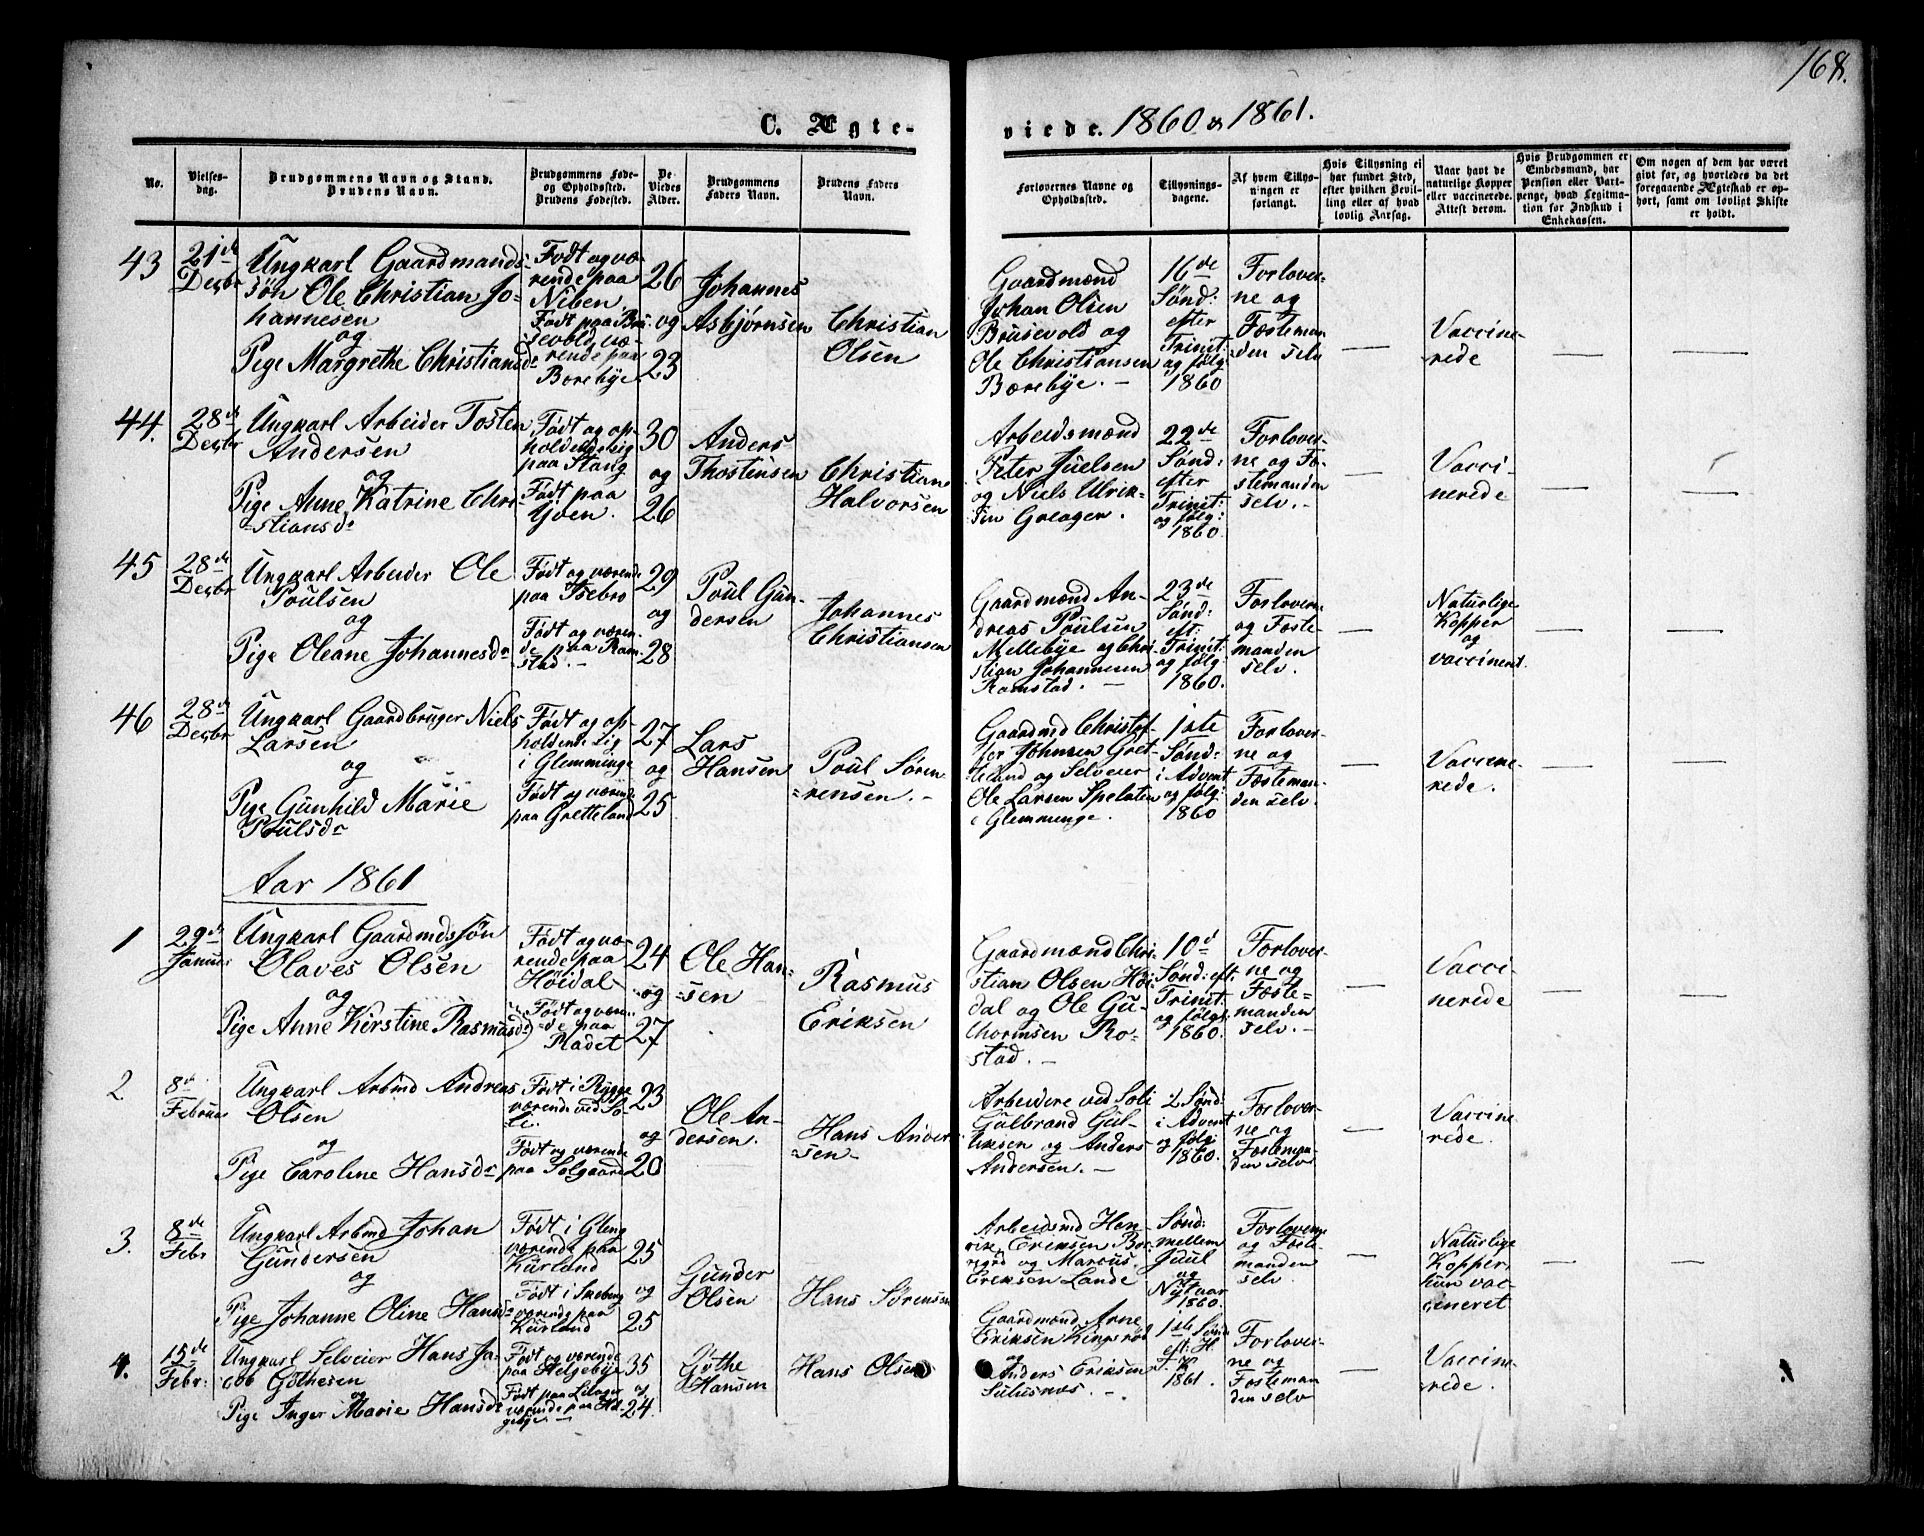 168.
C. Ægteviede. 1860 & 1861.
No.
Vielsesdag.
Brudgommens Navn og Stand.
Brudens Navn.
Brudgommens Føde-
og Opholdssted.
Brudens Fødested.
De
Viedes
Alder.
Brudgommens
Faders Navn.
Brudens Faders
Navn.
Forlovernes Navne og
Opholdssted.
Tillysnings-
dagene.
Af hvem Tillys-
ningen er
forlangt.
Hvis Tillysning ei
har fundet Sted,
efter hvilken Bevil-
ling eller af hvad
lovlig Aarsag.
Naar havt de
naturlige Kopper
eller vaccinerede.
Attest derom.
Hvis Brudgommen er
Embedsmand, har
Pension eller Vart-
penge, hvad Legitima-
tion for Indskud i
Enkekassen.
Om nogen af dem har været
givt før, og hvorledes da det
foregaaende Ægteskab er op-
hørt, samt om lovligt Skifte
er holdt.
43
21de
Decbr
Ungkarl Gaardmands-
søn Ole Christian Jo-
hannesen
og
Pige Margrethe Christiansdr
Født og væ-
rende paa
Niben
Født paa Bru
sevold, væ-
rende paa
Borebye
26
og
23
Johannes
Asbjørnsen
Christian
Olsen
Gaardmænd
Johan Olsen
Brusevold og
Ole Christiansen
Bærebye. –
16de
Sønd:
efter
Trinit:
og følg:
1860
Forlover-
ne og
Fæsteman
den selv
—
Vaccine-
rede
—
—
44.
28de
Decbr
Ungkarl Arbeider Tosten
Andersen
og
Pige Anne Katrine Chri-
stiansdr
Født og op-
holdende sig
paa Stang
Født paa
30
og
26
Anders
Thostensen
Christian
Halvorsen
Arbeidsmænd
Peter Juelsen
og Niels Ulrik-
sen Greager.
22de
Sønd:
efter
Trinit:
og følg:
1860.
Forlover-
ne og Fæ-
stemanden
selv. –
—
Vacci-
nerede
—
—
45
28de
Decbr
Ungkarl Arbeider Ole
Poulsen
og
Pige Oleane Johannesdr
Født og værende
paa Isebro
Født og væren-
de paa Ram-
stad. –
29
og
28
Poul Gun-
dersen
Johannes
Christiansen
Gaardmænd An-
dreas Poulsen
Mellebye og Chri-
stian Johannesen
Ramstad. –
23de
Sønd:
eft:
Trinit:
og følg:
1860.
Forlovere
og Fæste-
manden
selv.
—
Naturlige
Kopper
og
vaccineret.
—
—
46
28de
Decbr
Ungkarl Gaardbruger Niels
Larsen
og
Pige Gunhild Marie
Poulsdr
Født og op-
holdende sig
i Glemminge
Født og værende
paa Gretteland
27
og
25
Lars
Hansen
Poul Søren
rensen. –
Gaardmd Christof-
fer Johnsen Gret-
teland og Selveier
Ole Larsen Spelaten
i Glemminge.
1ste
Sønd:
i Advent
og følg:
1860
Forlover-
ne og
Fæsteman-
den selv.
—
Vaccine-
rede.
—
—
Aar 1861
1
29de
Januar
Ungkarl Gaardmdssøn
Olaves Olsen
og
Pige Anne Kirstine Rasmusdr
Født og væ-
rende paa
Høidal
Født og væren-
de paa
Rødet
24
og
27
Ole Han-
sen
Rasmus
Eriksen
Gaardmænd Chri-
stian Olsen Høi-
dal og Ole Gu-
thormsen Ro-
stad. –
10de
Sønd: eft.
Trinit:
og følg:
1860.
Forlover-
ne og
Fæste-
manden
selv. –
—
Vacci-
nerede
—
—
2
8de
Februar
Ungkarl Arbmd Andreas
Olsen
og
Pige Caroline Hansdr
Født i Rygge
værende ved So-
li.
Født og værende
paa Solgaard
23
og
20
Ole An-
dersen.
Hans Ander
sen
Arbeidere ved Soli
Gulbrand Gul-
liksen og Anders
Andersen. –
2 Sønd:
i Advent
og følg:
1860.
Forlover-
ne og
Fæsteman-
den selv
—
Vaccine-
rede.
3.
8de
Febr
Ungkarl Arbmd Johan
Gundersen
og
Pige Johanne Oline Hansdr
Født i Gleng
værende paa
Kurland
Født i Skeberg
værende paa
Kurland
25
og
25
Gunder
Olsen
Hans Sørensen
Arbeidsmd Hen-
rik Eriksen Bor-
regård og Marcus
Eriksen Lande
Sønd:
mellem
Juul
og
Nytaar
1860.
Forlovere
og Fæste-
manden
selv
—
Naturlige
Kopper
hun vac-
cineret
—
—
4.
15de
Febr:
Ungkarl Selveier Hans Ja-
cob Gøthesen
og
Pige Inger Marie Hansdr
Født og værende
paa Helgebye
værende paa Hel-
gebye. –
35
og
24.
Gøthe
Hansen
Hans Olsen
Gaardmænd Arne
Eriksen Kingsrød
og
Anders Eriksen
1ste Sønd:
eft: H.
3 K
1861
Forlover-
ne og
Fæsteman
den selv
—
Vaccine-
rede.